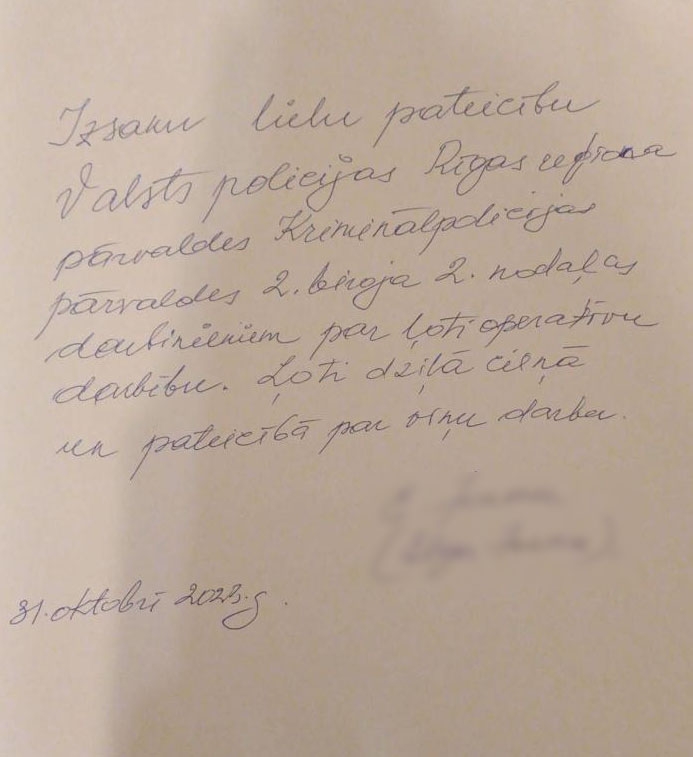 Izsaku lielu pateicību
Valsts policijas Rīgas reģiona
pārvaldes Kriminālpolicijas
pārvaldes 2. biroja 2. nodaļas
darbiniekiem par ļoti operatīvu
darbību. Ļoti dziļā cieņā
un pateicībā par viņu darbu.
31. oktobrī 2023. g.